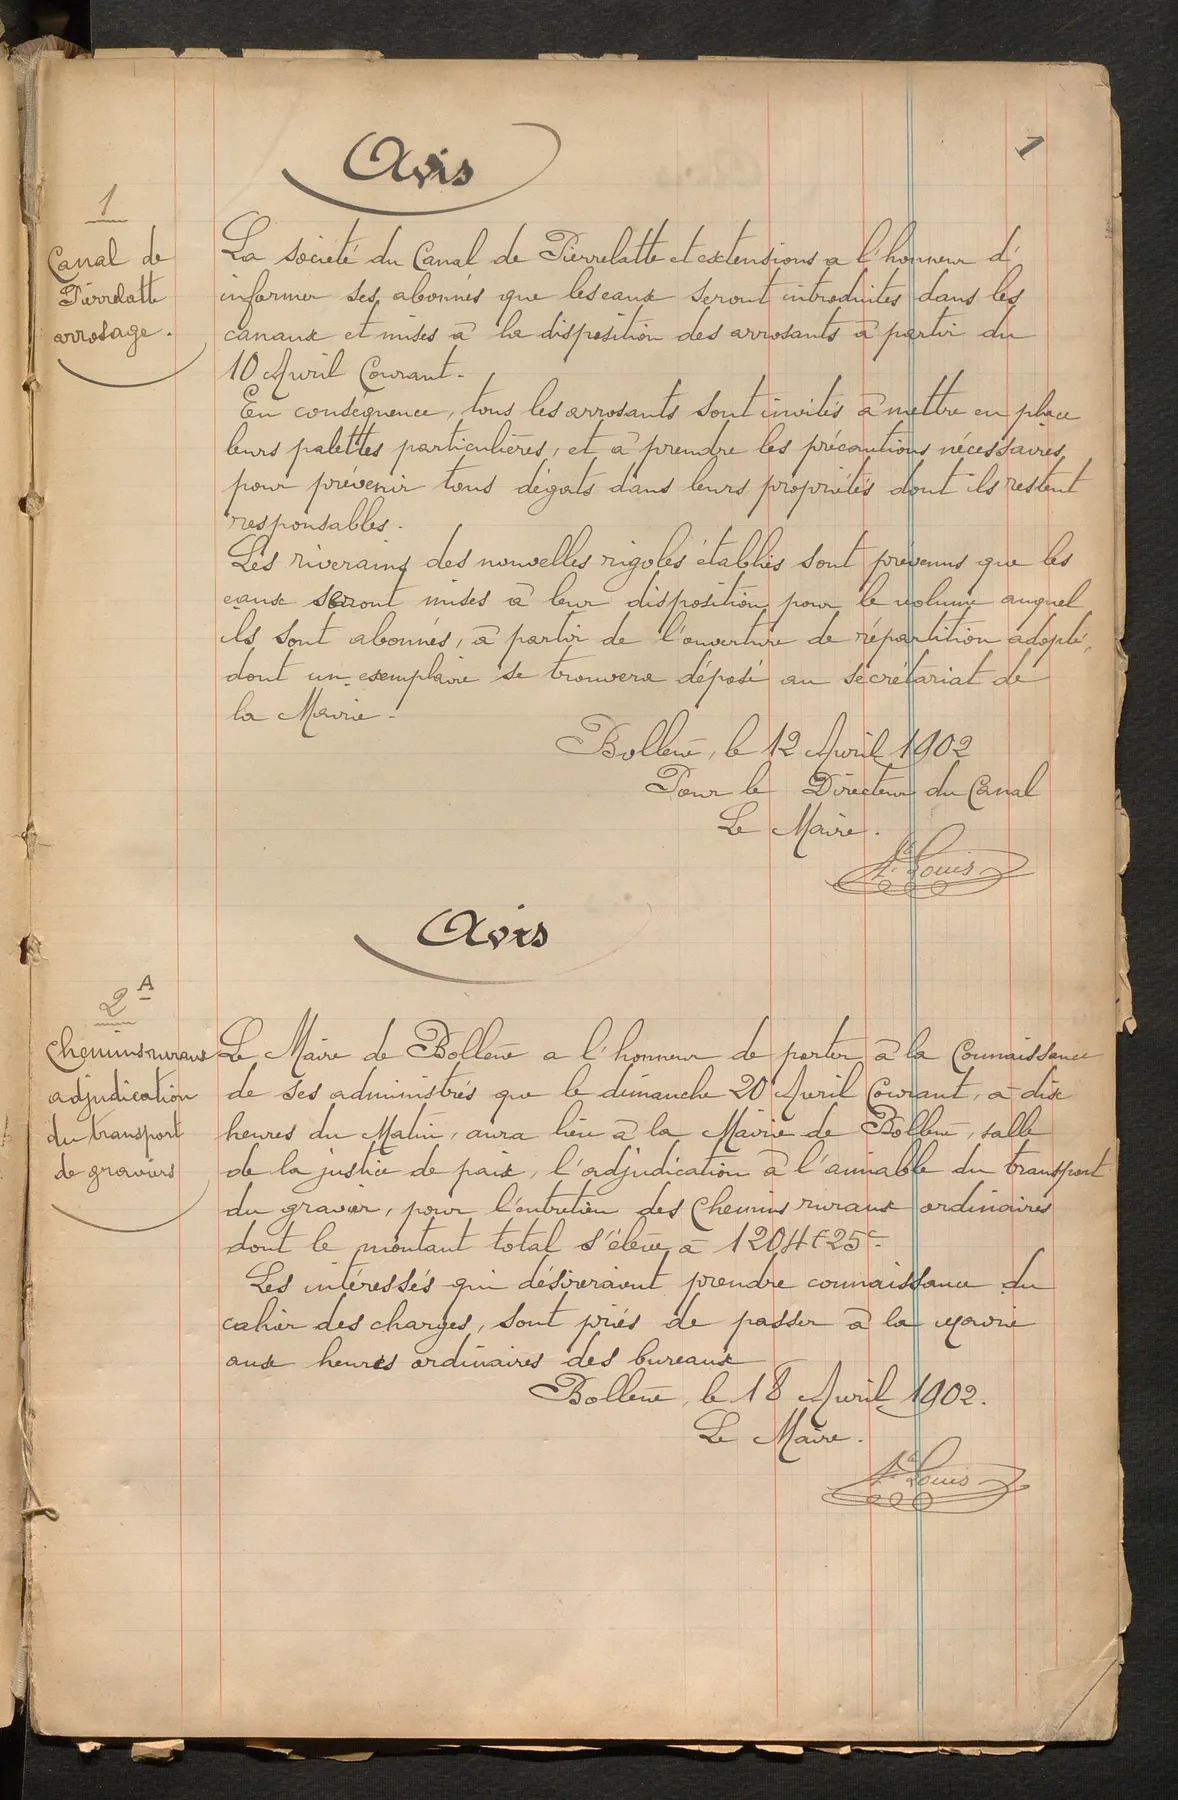 1
Avis
1
Canal de
Pierrelatte
arrosage.
La société du Canal de Pierrelatte et extensions a l'honneur d'
informer ses abonnés que les eaux seront introduites dans les
canaux et mises à la disposition des arrosants à partir du
10 Avril Courant.
En conséquence, tous les arrosants sont invités à mettre en place
leurs palettes particulières, et à prendre les précautions nécessaires
pour prévenir tous dégats dans leurs propriétés dont ils restent
responsables.
Les riverains des nouvelles rigoles établies sont prévenus que les
eaux seront mises à leur disposition pour le volume auquel
ils sont abonnés, à partir de l'ouverture de répartition adopté,
dont un exemplaire se trouvera déposé au secrétariat de
la Mairie.
Bollène, le 12 Avril 1902
Pour le Directeur du Canal
Le Maire.
Louis
Avis
2 A
Chemins ruraux
adjudication
du transport
de graviers
Le Maire de Bollène a l'honneur de porter à la Connaissance
de ses administrés que le dimanche 20 Avril Courant, à dix
heures du Matin, aura lieu à la Mairie de Bollène, salle
de la justice de paix, l'adjudication à l'amiable du transport
du gravier, pour l'entretien des Chemins ruraux ordinaires
dont le montant total s'élève à 1204f25c.
Les intéressés qui désireraient prendre connaissance du
cahier des charges, sont priés de passer à la Mairie
aux heures ordinaires des bureaux
Bollène, le 18 Avril 1902.
Le Maire.
Louis